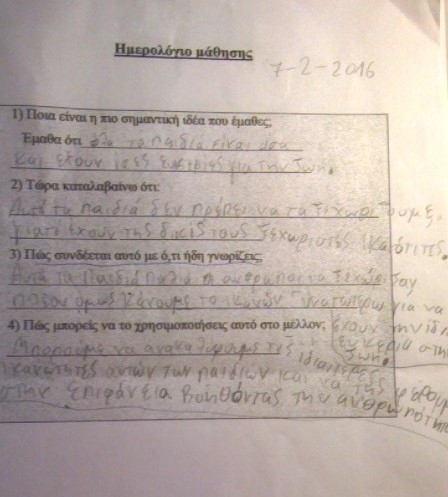 Ημερολόγιο μάθησης
7-2-2016
1) Ποια είναι η πιο σημαντική ιδέα που έμαθες;
Έμαθα ότι όλα τα παιδιά είναι ίσα
και έχουν ίσες ευκαιρίες για την ζωή.
2) Τώρα καταλαβαίνω ότι:
Αυτά τα παιδιά δεν πρέπει να τα ξεχωρίζουμε,
γιατί έχουν τις δικές τους ξεχωριστές ικανότητες.
3) Πώς συνδέεται αυτό με ό,τι ήδη γνωρίζεις;
Αυτά τα Παιδιά παλιά οι άνθρωποι τα ξεχώριζαν
πλέον όμως κάνουμε το για να
έχουν την ίδια
ευκαιρία στη
ζωή.
4) Πώς μπορείς να το χρησιμοποιήσεις αυτό στο μέλλον;
Μπορούμε να τις ιδιαίτερες
ικανότητες αυτών των παιδιών και να τις φέρουμε
στην επιφάνεια βοηθόντας την ανθρωπότητα